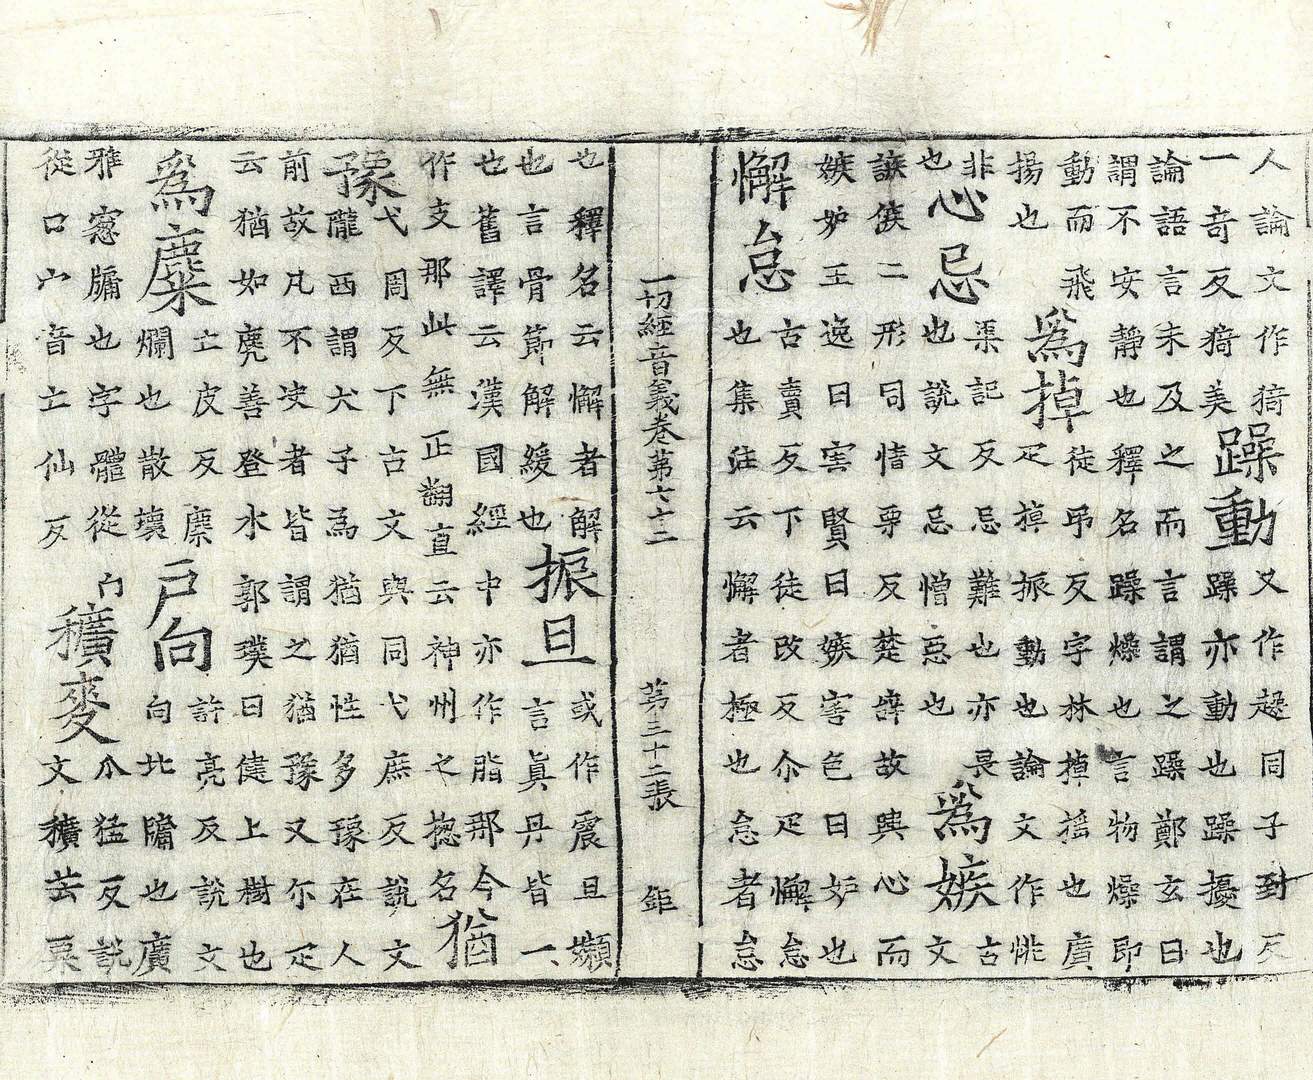 人論文作猗
一奇反猗美
躁動
又作趮同子到反
躁亦動也躁擾也
論語言未及之而言謂之躁鄭玄曰
謂不安靜也釋名躁燥也言物燥即
動而飛
揚也
爲掉
徒吊反字林掉搖也廣
疋掉振動也論文作恌
非
也
心忌
渠記反忌難也亦畏
也說文忌憎惡也
爲嫉
古
文
誺㑵二形同情栗反楚辭故興心而
嫉妒王逸曰害賢曰嫉害色曰妒也
懈怠
古賣反下徒改反尒疋懈怠
也集注云懈者極也怠者怠
一切經音義卷第二十二 第三十二張 鉅
也釋名云懈者解
也言骨節解緩也
振旦
或作震旦嬾
言眞丹皆一
也舊譯云漢國經中亦作脂那今
作支那此無正翻直云神州之揔名
猶
豫
弋周反下古文與同弋庶反說文
隴西謂犬子爲猶猶性多豫在人
前故凡不决者皆謂之猶豫又尔疋
云猶如麂善登木郭璞曰健上樹也
爲麋
亡皮反麋
爛也散壞
戶向
許亮反說文
向北牖也廣
雅窓牖也字體從宀
從口宀音亡仙反
穬麥
瓜猛反說
文穬芒粟